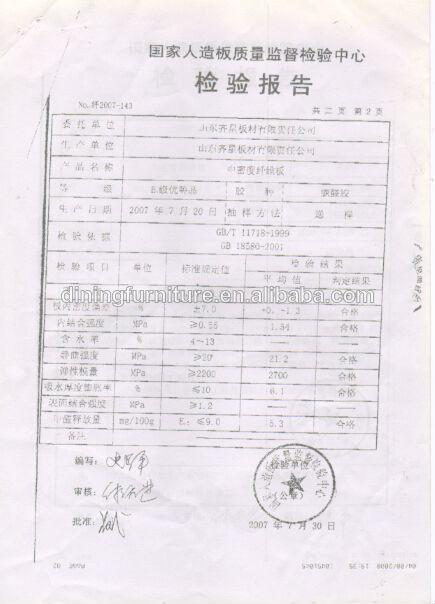 国家人造板质量监督检验中心
检验报告
No.纤2007-143
共二页 第2页
委托单位 山东齐星板材有限责任公司
生产单位 山东齐星板材有限责任公司
产品名称 中密度纤维板
等级 E₁级优等品 胶种 脲醛胶
生产日期 2007年7月20日 抽样方法 送样
检验依据 GB/T 11718-1999
GB 18580-2001
检验项目 单位 标准规定值 检验结果
平均值 判定结果
diningfurniture.en.alibaba.com
板内密度偏差 % ±7.0 合格
内结合强度 MPa ≥0.55 合格
含水率 % 4~13 —— ——
静曲强度 MPa ≥20 21.2 合格
弹性模量 MPa ≥2200 2700 合格
吸水厚度膨胀率 % ≤10 合格
表面结合强度 MPa ≥1.2 —— ——
甲醛释放量 mg/100g E₁: ≤9.0 5.3 合格
备注
编写:
检验单位
审核:
(公章)
批准:
国家人造板质量监督检验中心
2007年7月30日
04/08/2008 19:35 10451045 PAGE 02